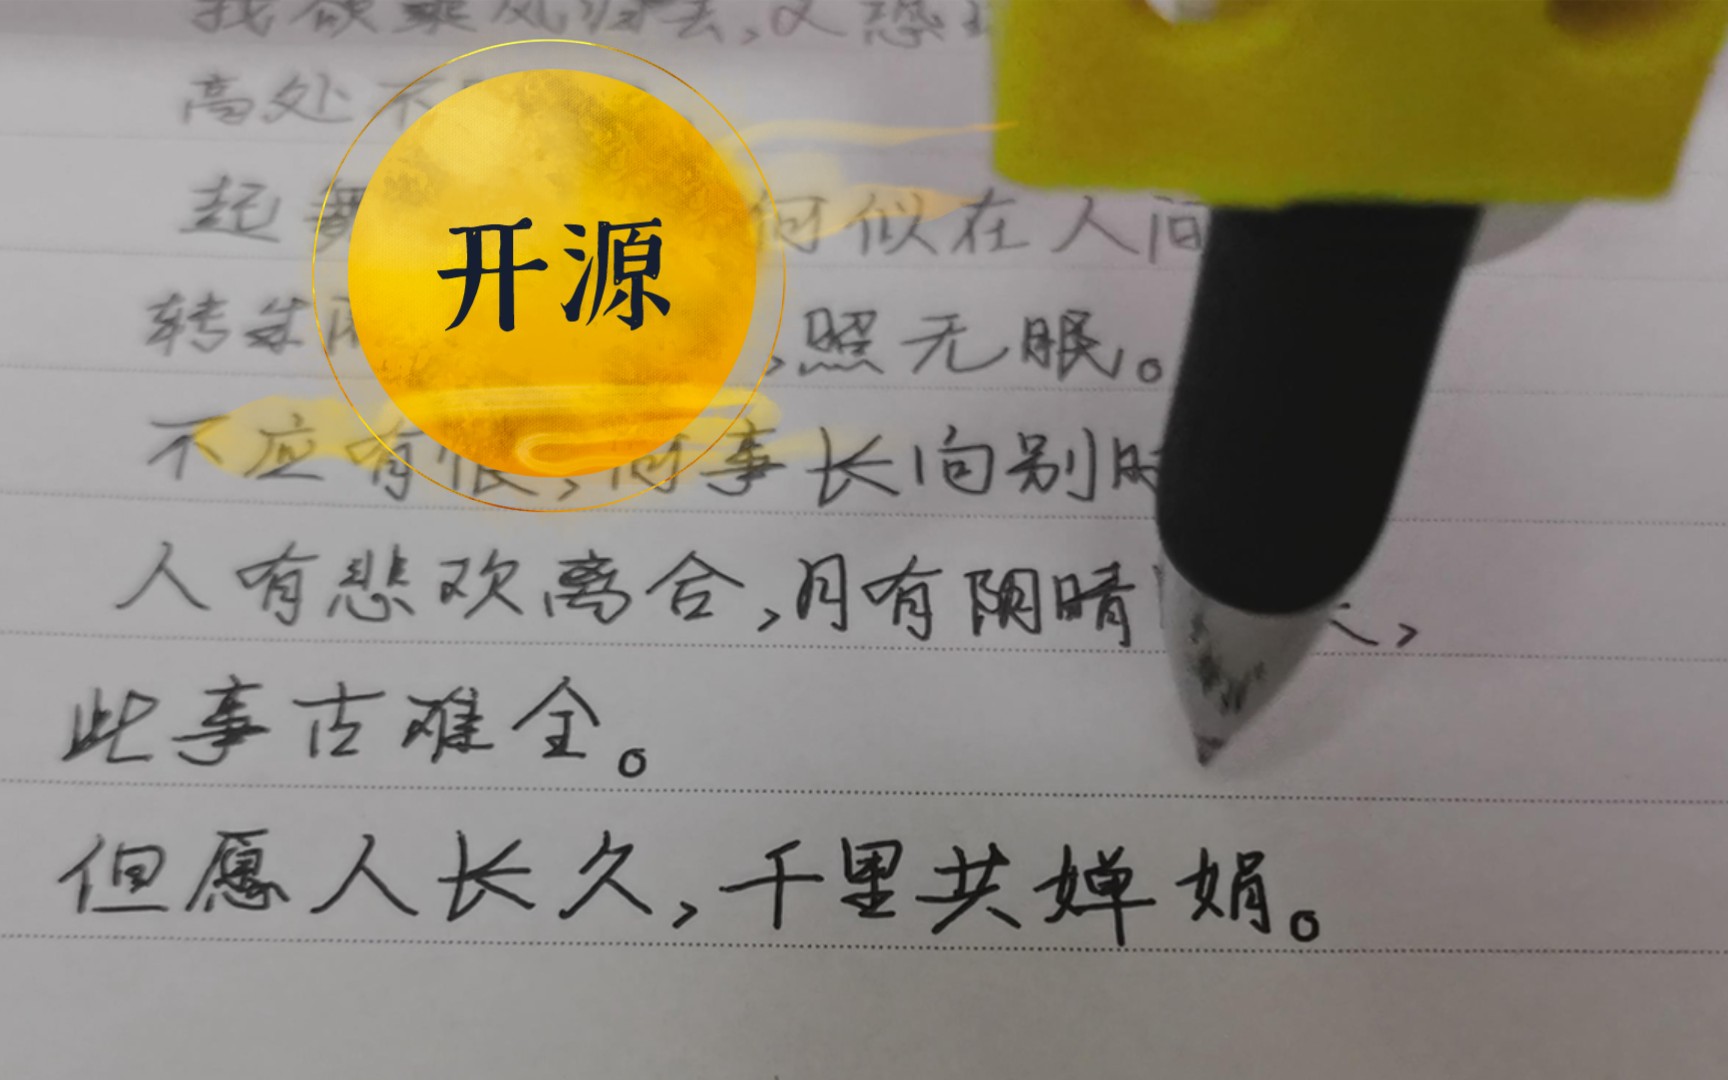 我欲乘风归去,又恐
高处不
起舞 何似在人间
开源
转朱 ,照无眠。
不应有恨,何事长向别时
人有悲欢离合,月有阴晴 ,
此事古难全。
但愿人长久,千里共婵娟。